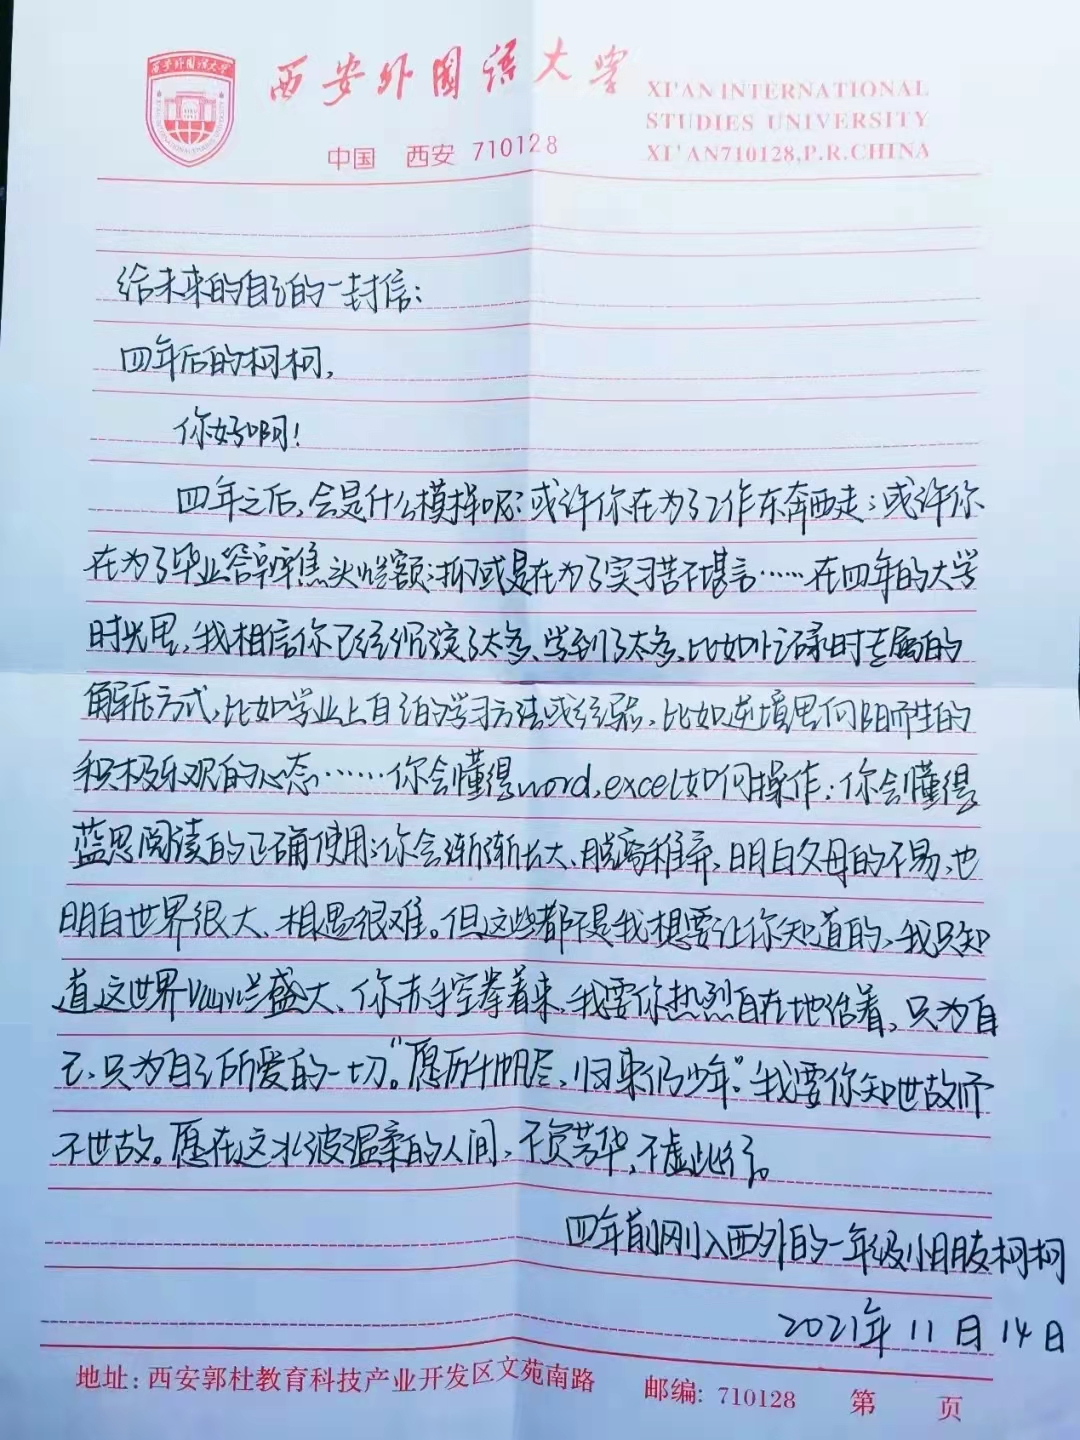 西安外国语大学
XI'AN INTERNATIONAL
STUDIES UNIVERSITY
中国 西安 710128
XI'AN710128,P.R.CHINA
给未来的自己的一封信：
四年后的柯柯，
你好啊！
四年之后，会是什么模样呢？或许你在为了工作东奔西走；或许你
在为了毕业答辩焦头烂额；抑或是在为了实习苦不堪言……在四年的大学
时光里，我相信你已经沉淀了太多、学到了太多，比如忙碌时专属的
解压方式，比如学业上自己的学习方法或经验，比如逆境里向阳而生的
积极乐观的心态……你会懂得word，excel如何操作；你会懂得
蓝思阅读的正确使用；你会渐渐长大、脱离稚弃，明白父母的不易，也
明白世界很大、相遇很难。但这些都不是我想要让你知道的，我只知
道这世界盛大、你赤手空拳着来，我要你热烈自在地活着，只为自
己、只为自己所爱的一切。“愿历千帆尽，归来仍少年。”我要你知世故而
不世故。愿在这水波温柔的人间，不负芳华，不虚此行。
四年前刚入西外的一年级小朋友柯柯
2021年11月14日
地址：西安郭杜教育科技产业开发区文苑南路 邮编：710128 第 页